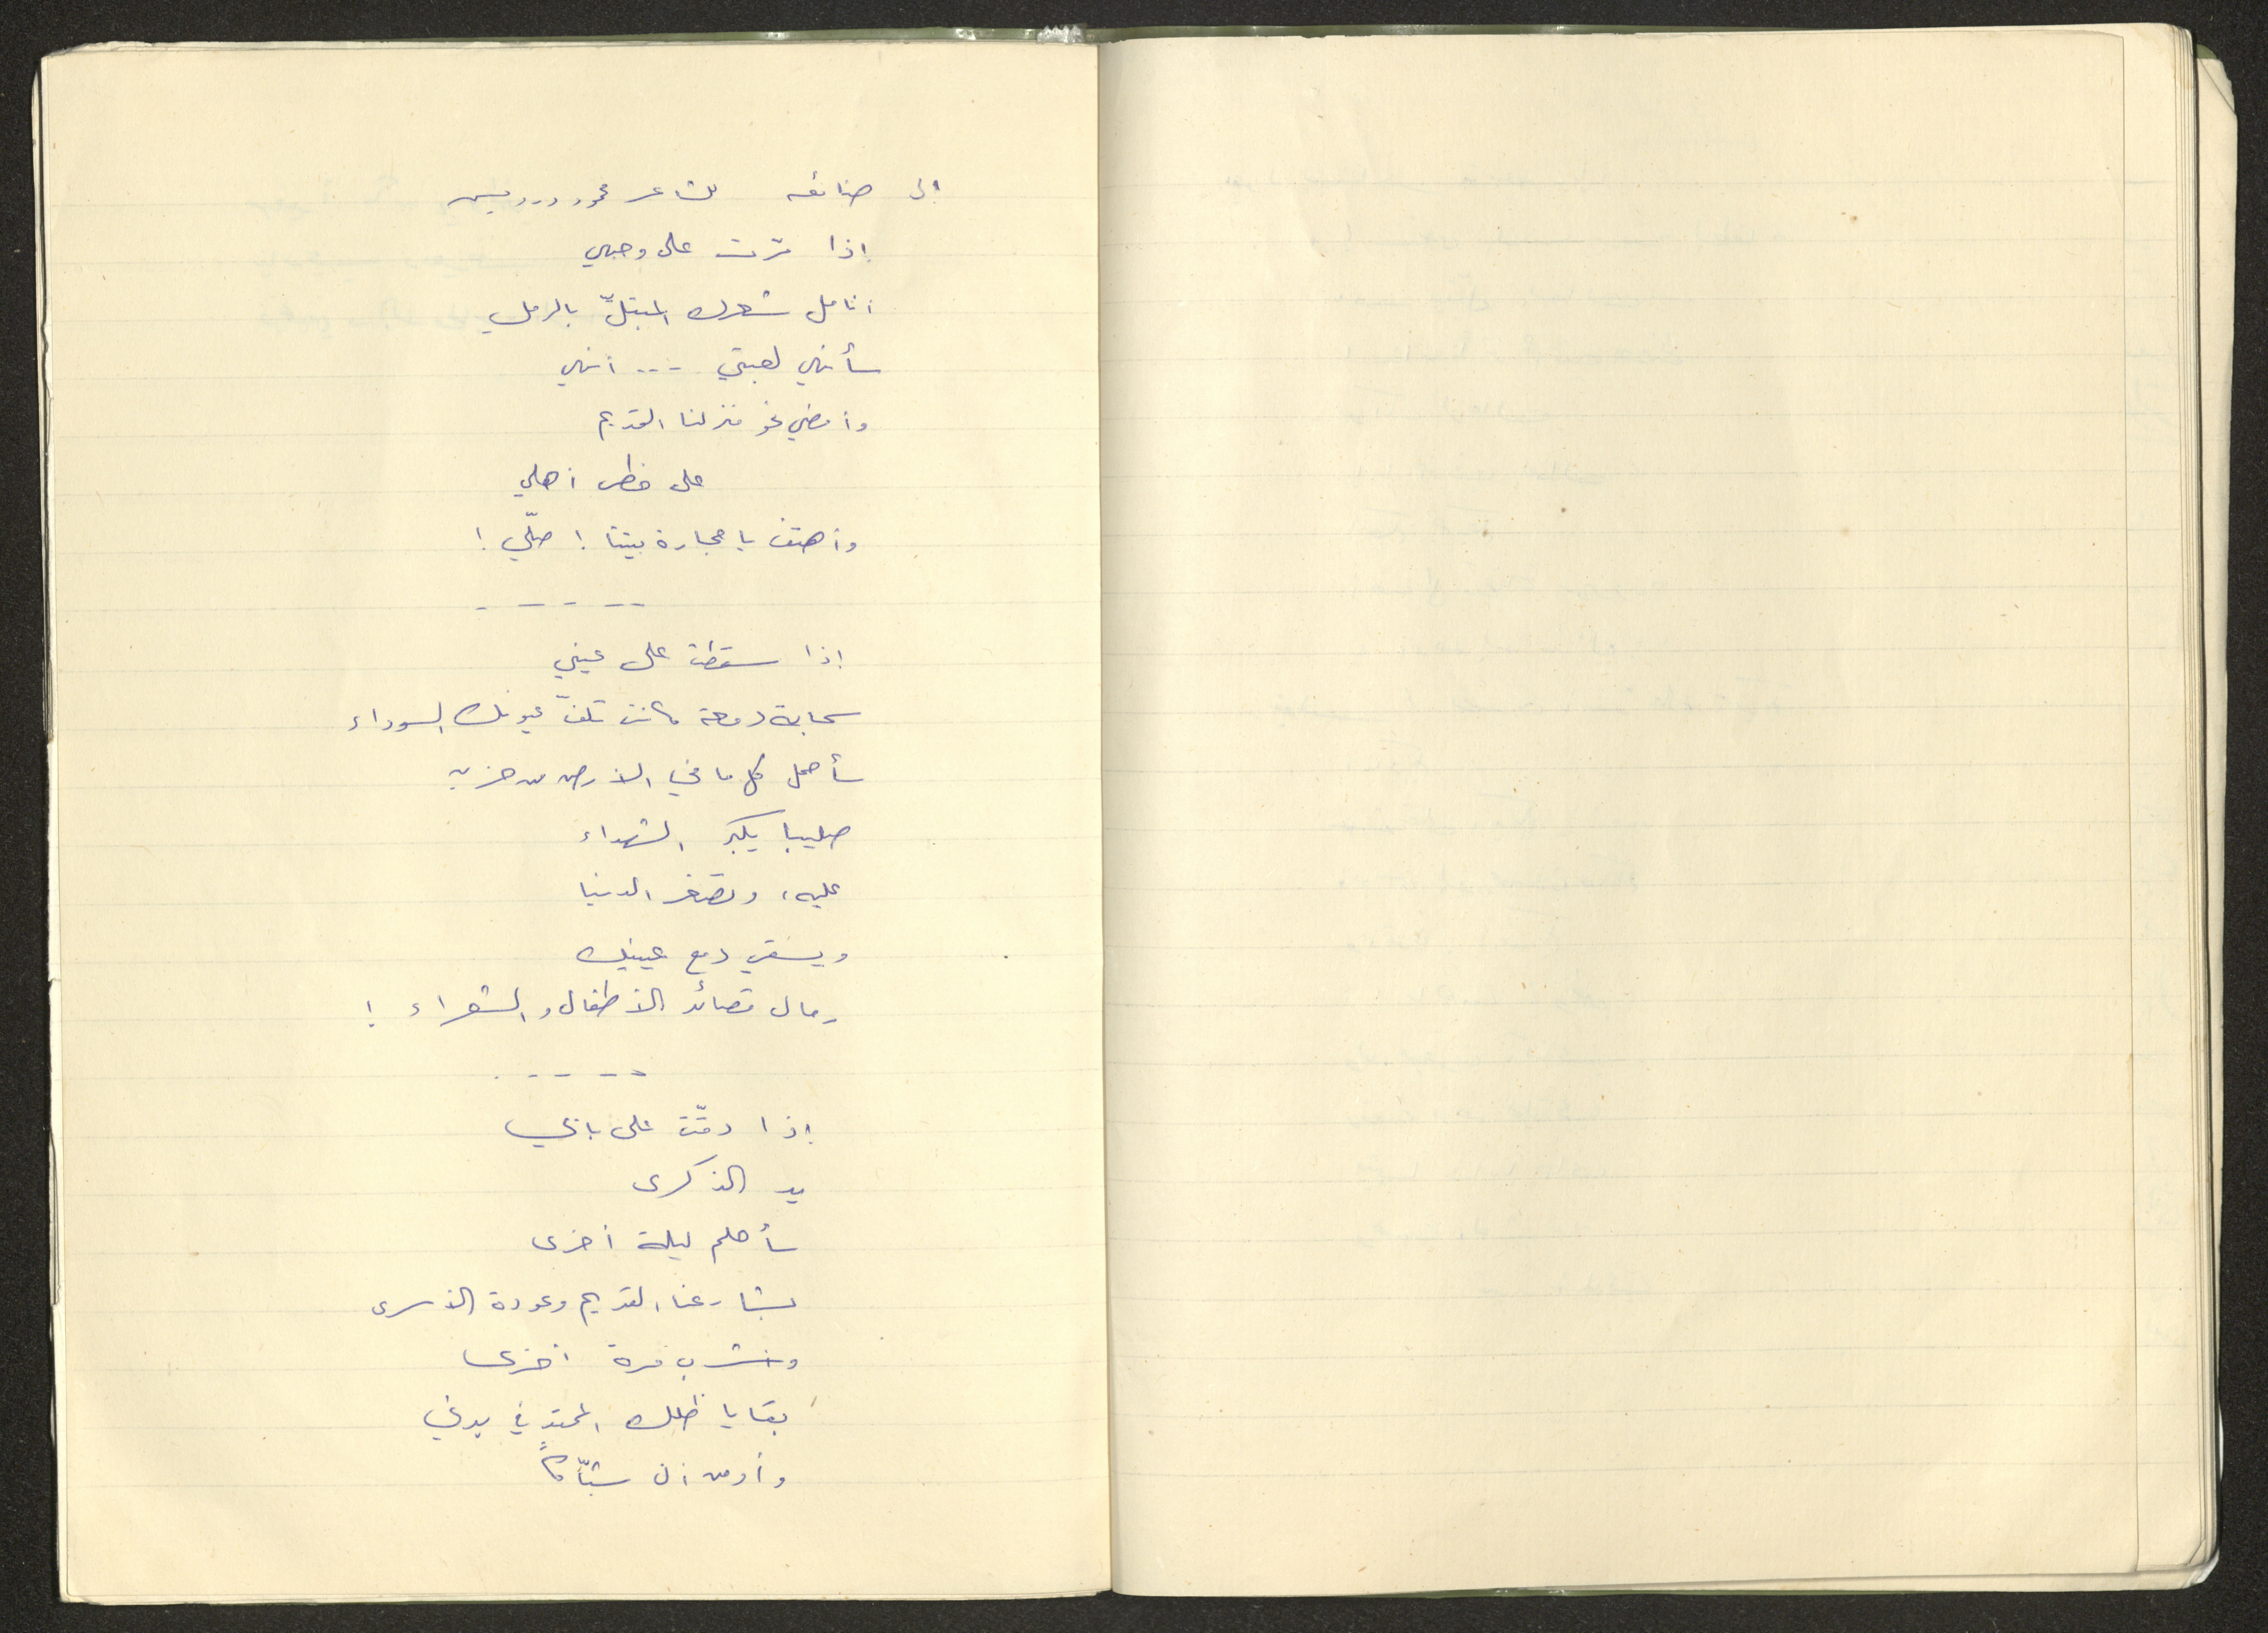 إلى ضائعه للشاعر محمود درويس
إذا مرّت على وجهي
أنامل شعرك المبتلّ بالرمل
سأنهي لعبتي --- أنهي
وأمضي نحو منزلنا القديم
على خطى أهلي
وأهتف يا حجارة بيتنا ! صلّي !
- - - - -
إذا سقطت على عيني
سحابة دمعة كانت تلفّ عيونك السوداء
سأحمل كل ما في الأرض من حزن
صليبا يكبر الشهداء
عليه، وتصغر الدنيا
ويسقي دمع عينيك
رمال قصائد الأطفال والشعراء !
- - - - -
إذا دقّت على بابي
يد الذكرى
سأحلم ليلة أخرى
بشارعنا القديم وعودة الأسرى
وأشرب مرة أخرى
بقايا ظلك الممتد في بدني
وأومن أن شبّاكاً